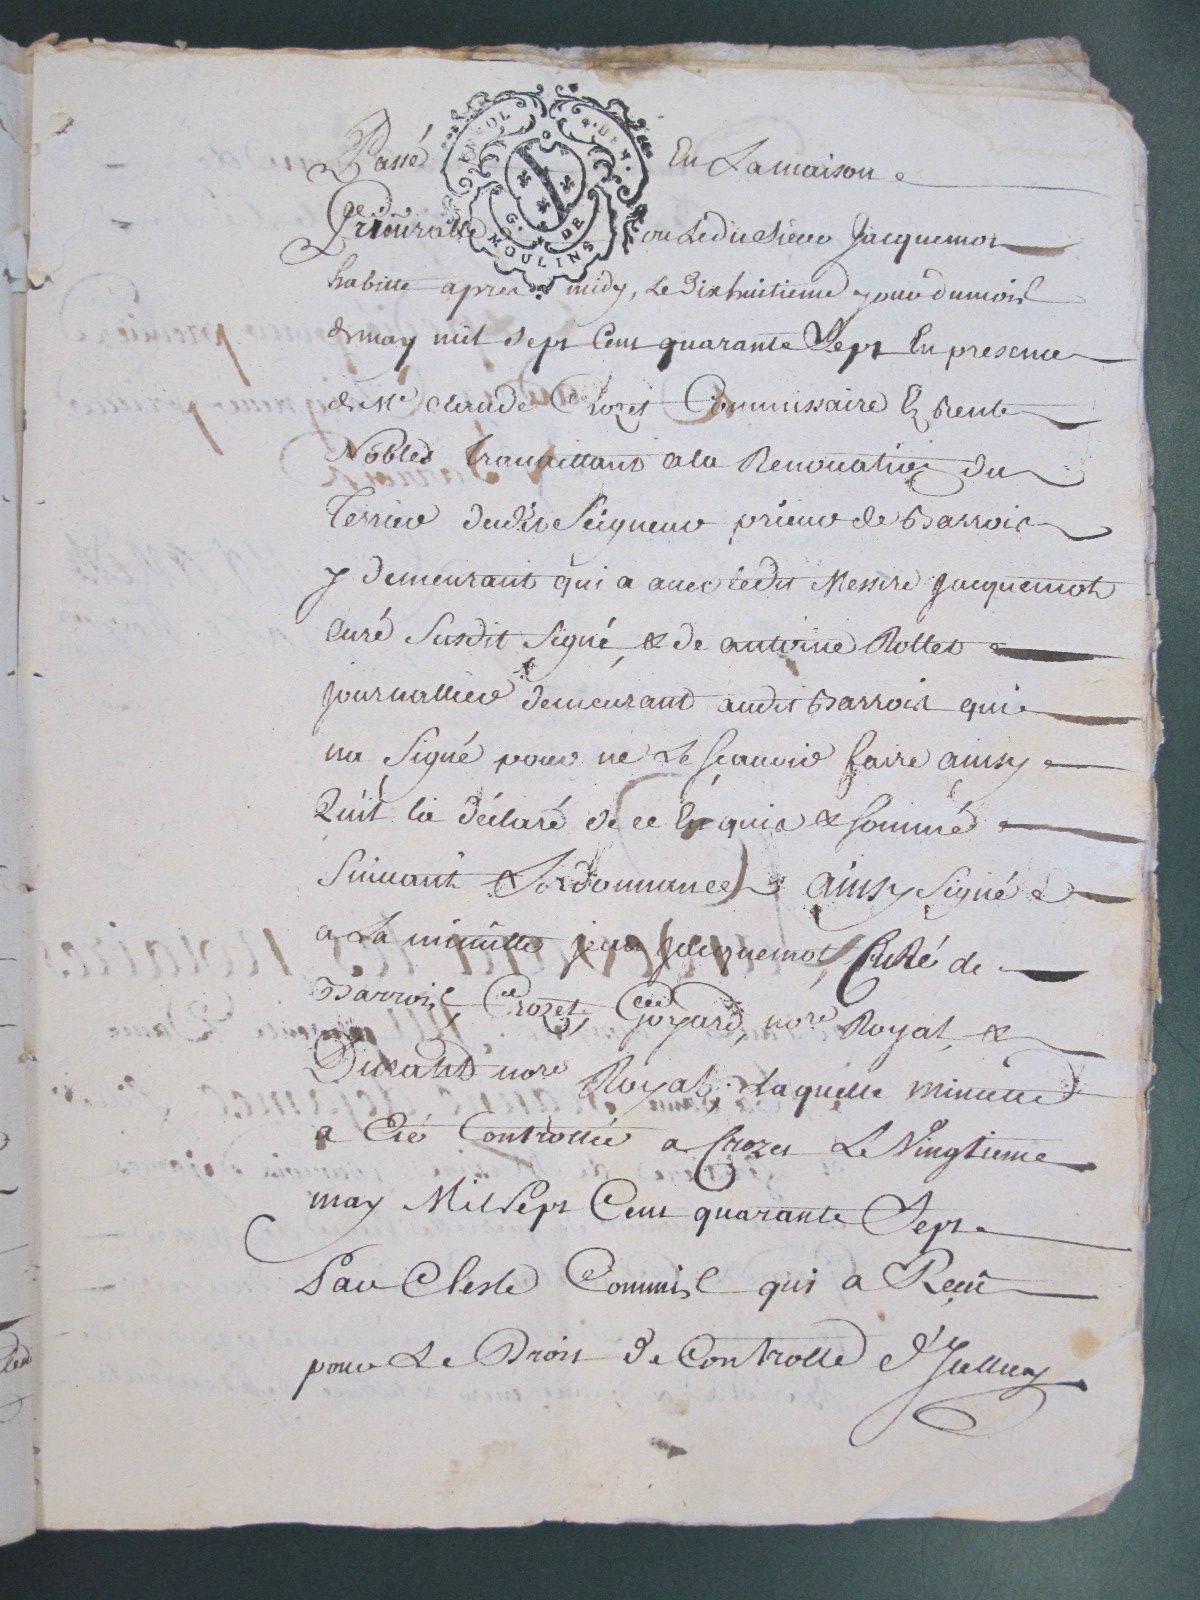 Passé En La maison
Priouralle ou Ledit Sieur Jacquemot
habitte apres midy, Le Dixhuitieme jour du mois
de may mil sept Cent quarante Sept En presence
de Me claude Crozet Commissaire En Rente
Nobles travaillant a la Renovation du
Terrier dudit Seigneur prieur de Barrois
y demeurant qui a avec ledit Messire Jacquemot
Curé Susdit Signé, & de antoine Rollet
journallier demeurant audit Barrois qui
na Signé pour ne Le Scavoir faire ainsy
Quil la déclaré de ce Enquis & Sommé
Suivant Lordonnance ainsy Signé
a La minutte jean Jacquemot, Curé de
Barrois, Crozet, Goyard, nore Royal, &
Durand nore Royal. Laquelle minutte
a Eté Controllée a Crozet Le Vingtieme
may Mil Sept Cent quarante Sept
Par Commis qui a Reçu
pour Le Droit de Controlle
GEN. DE
MOULINS